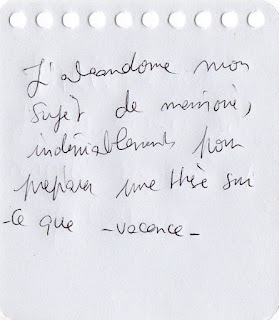 J'abandonne mon
sujet de mémoire,
indéniablement pour
préparer une thèse sur
-ce que -vacance-